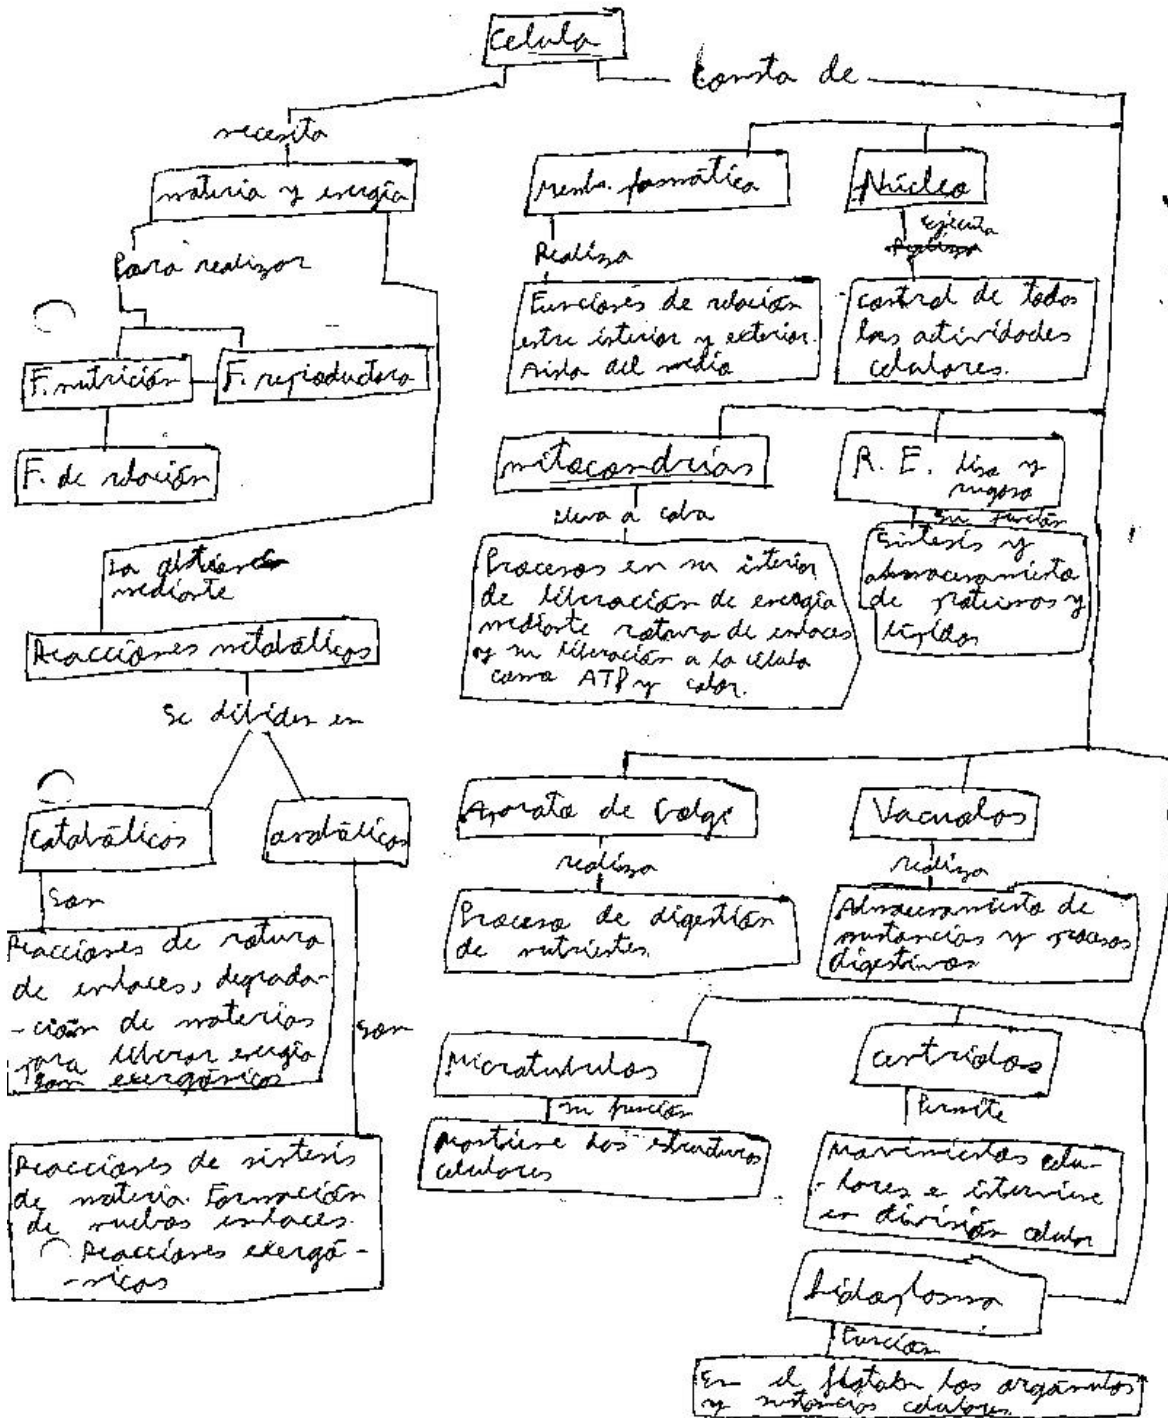 Celula
Consta de
necesita
materia y energía
Para realizar
F. nutrición
F. reproductora
F. de relación
La obtienen
mediante
Reacciones metabólicas
Se dividen en
Catabólicos
anabólicos
Son
Reacciones de rotura
de enlaces, degrada-
-ción de materias
para liberar energía
son exergónicos
son
Reacciones de sintesis
de materia. Formación
de nuebos enlaces.
Reacciones exergó-
-nicas
Memb. pasmática
Realiza
Funciones de relación
entre interior y exterior.
Aisla del medio
Núcleo
ejecuta
Realiza
control de todas
las actividades
celulares.
mitocondrias
lleva a cabo
Procesos en su interior
de liberación de energia
mediante rotura de enlaces
y su liberación a la célula
como ATP y calor.
R. E. liso y
rugoso
su función
Sintesis y
almacenamiento
de proteinas y
lípidos
Aparato de Golgi
realiza
Proceso de digestión
de nutrientes.
Vacuolas
realiza
Almacenamiento de
sustancias y procesos
digestivos
Microtubulos
su función
Mantiene las estructuras
celulares
Centriolos
Permite
Movimientos celu-
-lares e interviene
en división celular
Función
En el flotan los orgánulos
y sustancias celulares.